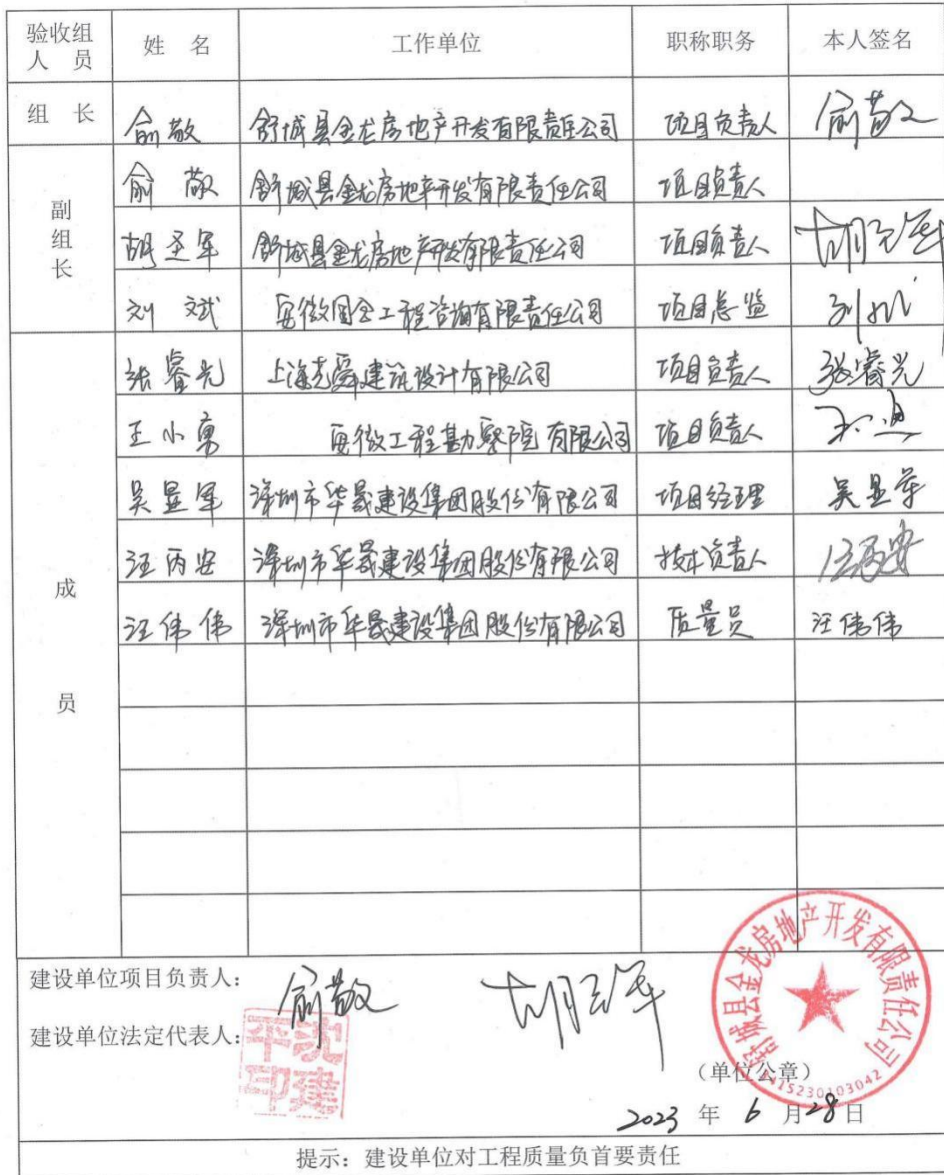 验收组人 员 姓 名 工作单位 职称职务 本人签名
组 长 俞敬 舒城县金龙房地产开发有限责任公司 项目负责人 俞敬
副组长
俞敬 舒城县金龙房地产开发有限责任公司 项目负责人
胡玉军 舒城县金龙房地产开发有限责任公司 项目负责人 胡玉军
刘斌 安徽国金工程咨询有限责任公司 项目总监 刘斌
成员
张睿光 上海尧舜建筑设计有限公司 项目负责人 张睿光
王小勇 安徽工程勘察院有限公司 项目负责人
吴显军 深圳市华晟建设集团股份有限公司 项目经理 吴显军
汪丙安 深圳市华晟建设集团股份有限公司 技术负责人 汪丙安
汪伟伟 深圳市华晟建设集团股份有限公司 质量员 汪伟伟
建设单位项目负责人: 俞敬 胡玉军
建设单位法定代表人: 沈建平印
舒城县金龙房地产开发有限责任公司
(单位公章)
2023 年 6 月 28 日
提示:建设单位对工程质量负首要责任